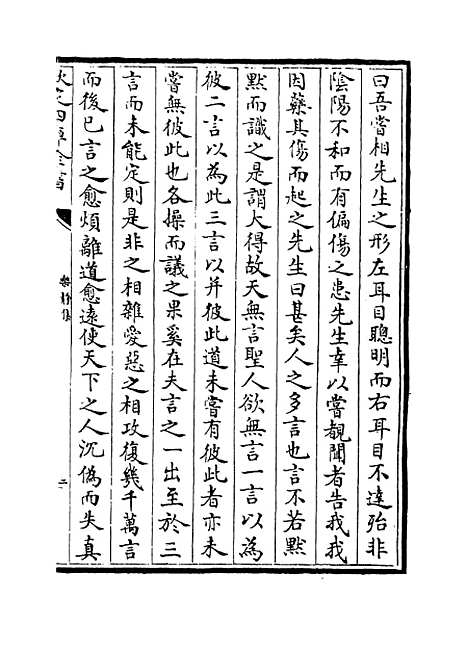 曰吾嘗相先生之形左耳目聰明而右耳目不達殆非
陰陽不和而有偏傷之患先生幸以嘗覩聞者告我我
因藥其傷而起之先生曰甚矣人之多言也言不若黙
黙而識之是謂大得故天無言聖人欲無言一言以為
彼二言以為此三言以并彼此道未嘗有彼此者亦未
嘗無彼此也各操而議之果奚在夫言之一出至於三
言而未能定則是非之相雜愛惡之相攻復幾千萬言
而後已言之愈煩離道愈逺使天下之人沉偽而失真
欽定四庫全書
樂静集
二